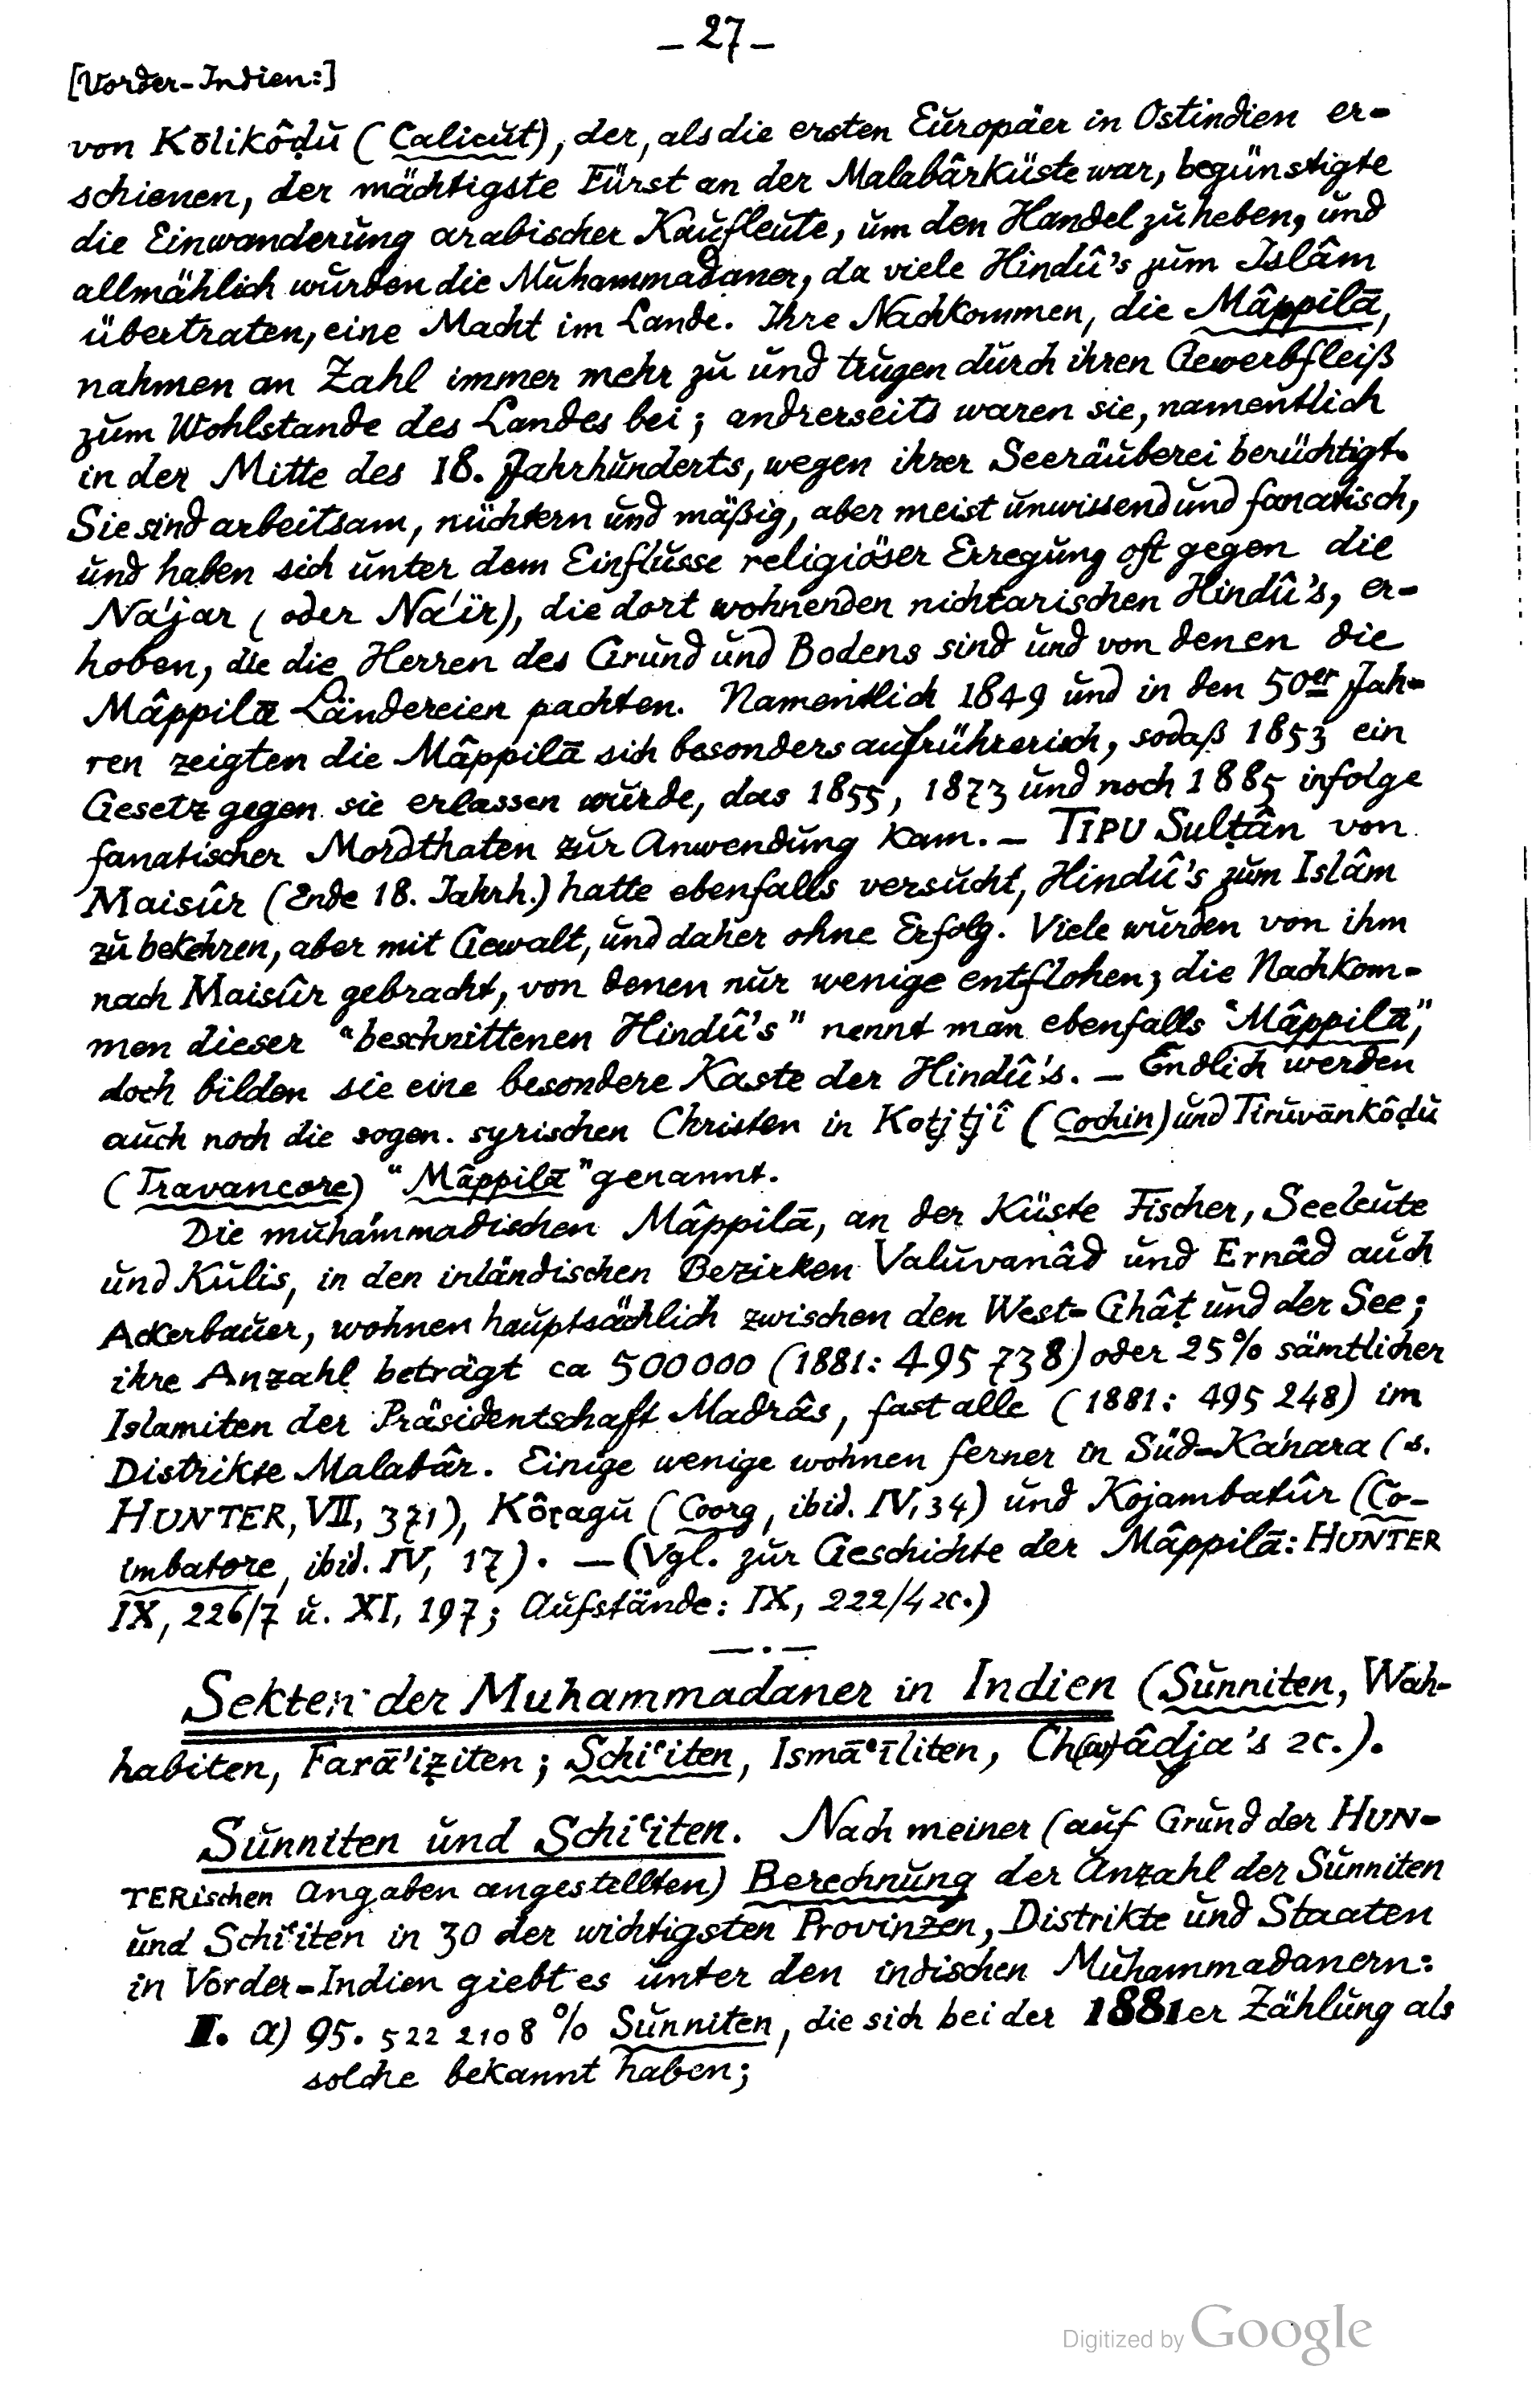 – 27 –
[Vorder-Indien:]
von Kōlikôḍu (Calicut), der, als die ersten Europäer in Ostindien er-
schienen, der mächtigste Fürst an der Malabârküste war, begünstigte
die Einwanderung arabischer Kaufleute, um den Handel zu heben, und
allmählich wurden die Muhammadaner, da viele Hindû's zum Islâm
übertraten, eine Macht im Lande. Ihre Nachkommen, die Mâppilā,
nahmen an Zahl immer mehr zu und trugen durch ihren Gewerbfleiß
zum Wohlstande des Landes bei; andrerseits waren sie, namentlich
in der Mitte des 18. Jahrhunderts, wegen ihrer Seeräuberei berüchtigt.
Sie sind arbeitsam, nüchtern und mäßig, aber meist unwissend und fanatisch,
und haben sich unter dem Einflusse religiöser Erregung oft gegen die
Na'jar (oder Na'ïr), die dort wohnenden nichtarischen Hindû's, er-
hoben, die die Herren des Grund und Bodens sind und von denen die
Mâppilā Ländereien pachten. Namentlich 1849 und in den 50er Jah-
ren zeigten die Mâppilā sich besonders aufrührerisch, sodaß 1853 ein
Gesetz gegen sie erlassen wurde, das 1855, 1873 und noch 1885 infolge
fanatischer Mordthaten zur Anwendung kam. – TIPU Sulṭân von
Maisûr (Ende 18. Jahrh.) hatte ebenfalls versucht, Hindû's zum Islâm
zu bekehren, aber mit Gewalt, und daher ohne Erfolg. Viele wurden von ihm
nach Maisûr gebracht, von denen nur wenige entflohen; die Nachkom-
men dieser "beschnittenen Hindû's" nennt man ebenfalls "Mâppilā",
doch bilden sie eine besondere Kaste der Hindû's. – Endlich werden
auch noch die sogen. syrischen Christen in Kotjtjî (Cochin) und Tiruvānkôḍu
(Travancore) "Mâppilā" genannt.
Die muhammadischen Mâppilā, an der Küste Fischer, Seeleute
und Kulis, in den inländischen Bezirken Valuvanâd und Ernâd auch
Ackerbauer, wohnen hauptsächlich zwischen den West-Ghâṭ und der See;
ihre Anzahl beträgt ca 500000 (1881: 495 738) oder 25% sämtlicher
Islamiten der Präsidentschaft Madrâs, fast alle (1881: 495 248) im
Distrikte Malabâr. Einige wenige wohnen ferner in Süd-Ka'nara (s.
HUNTER, VII, 371), Kôṛagu (Coorg, ibid. IV, 34) und Kojambatûr (Co-
imbatore, ibid. IV, 17). – (Vgl. zur Geschichte der Mâppilā: HUNTER
IX, 226/7 u. XI, 197; Aufstände: IX, 222/4 ꝛc.)
Sekten der Muhammadaner in Indien (Sunniten, Wah-
habiten, Farā'iẓiten; Schiʿiten, Ismāʿīliten, Ch(w)âdja's ꝛc.).
Sunniten und Schiʿiten. Nach meiner (auf Grund der HUN-
TERischen Angaben angestellten) Berechnung der Anzahl der Sunniten
und Schiʿiten in 30 der wichtigsten Provinzen, Distrikte und Staaten
in Vorder-Indien giebt es unter den indischen Muhammadanern:
II. a) 95. 522 2108 % Sunniten, die sich bei der 1881er Zählung als
solche bekannt haben;
Digitized by Google